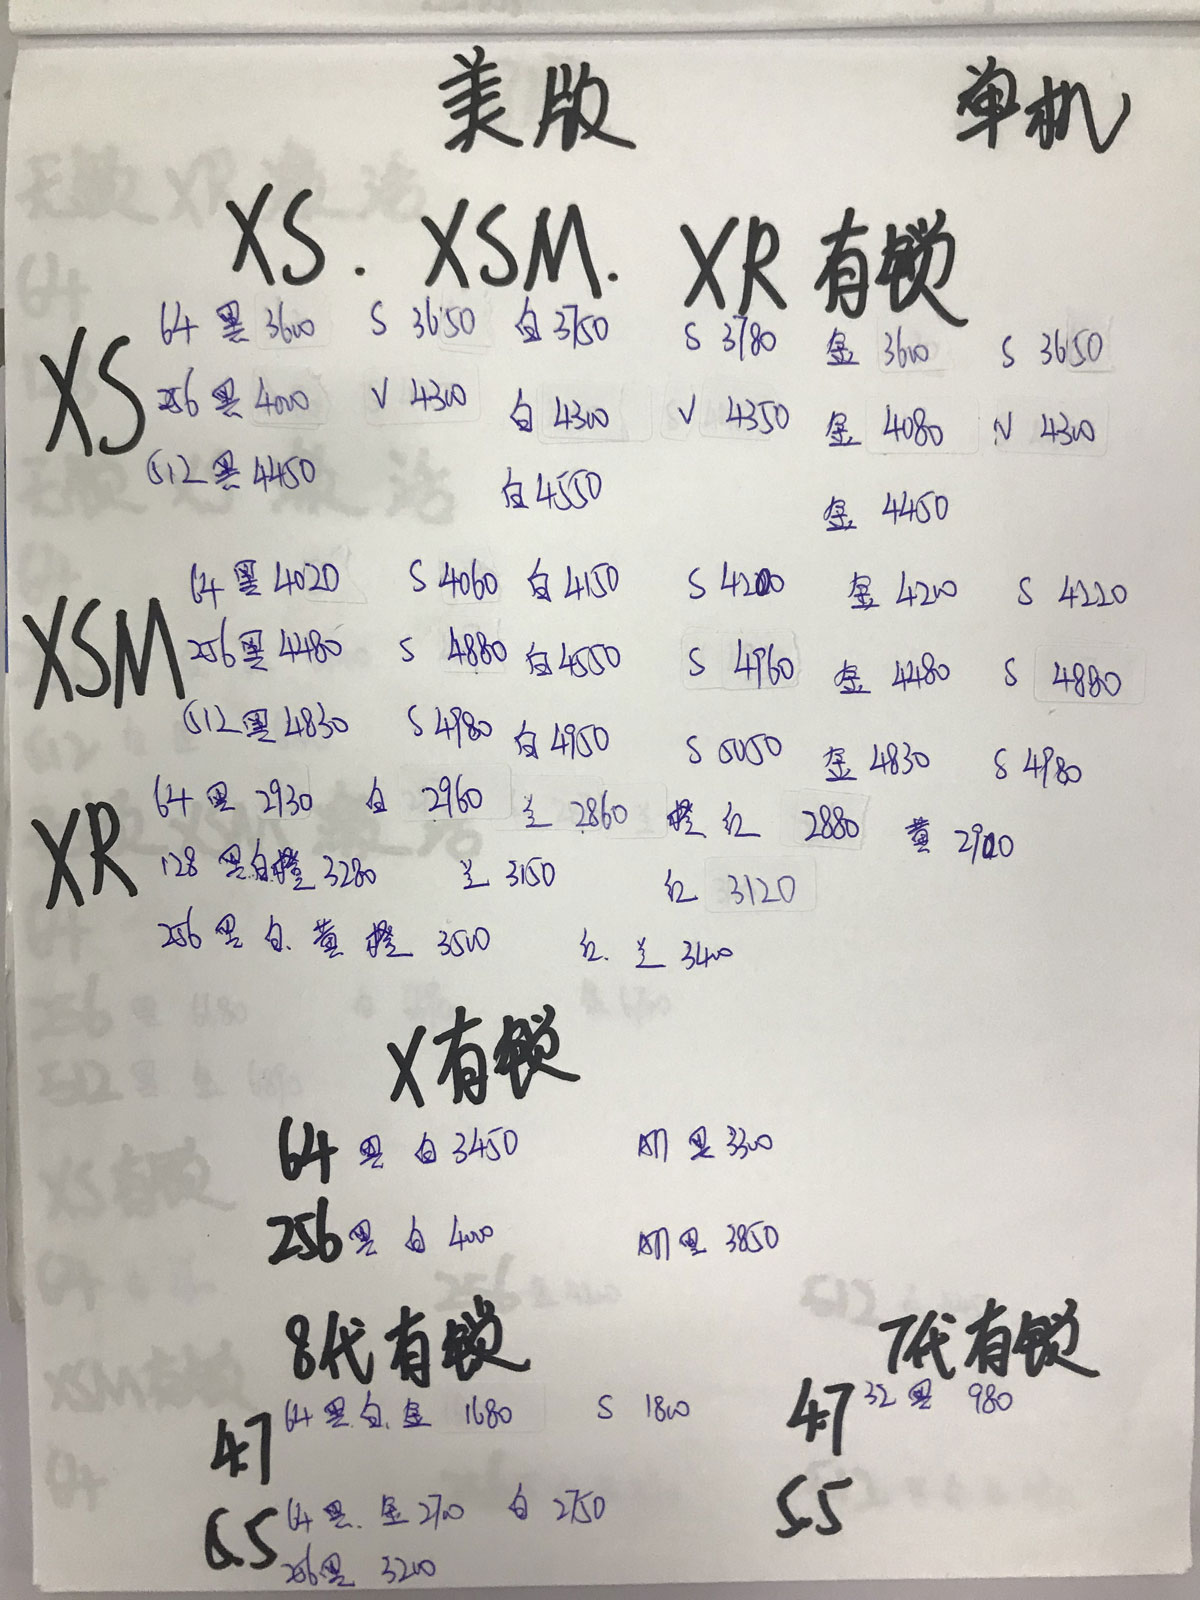 美版 单机
XS. XSM. XR有锁
XS
64 黑 3600 S 3650 白 3750 S 3780 金 3600 S 3650
256 黑 4000 V 4300 白 4300 V 4350 金 4080 V 4300
512 黑 4450 白 4550 金 4450
XSM
64 黑 4020 S 4060 白 4150 S 4200 金 4200 S 4220
256 黑 4480 S 4880 白 4550 S 4960 金 4480 S 4880
512 黑 4830 S 4980 白 4950 S 5050 金 4830 S 4980
XR
64 黑 2930 白 2960 兰 2860 橙 红 2880 黄 2920
128 黑.白.橙 3280 兰 3150 红 3120
256 黑 白. 黄 橙 3500 红. 兰 3400
X有锁
64 黑 白 3450 黑 3300
256 黑 白 4000 黑 3850
8代有锁 7代有锁
4.7 64 黑.白.金 1680 S 1800 4.7 32 黑 980
5.5 64 黑. 金 2700 白 2750 5.5
256 黑 3200